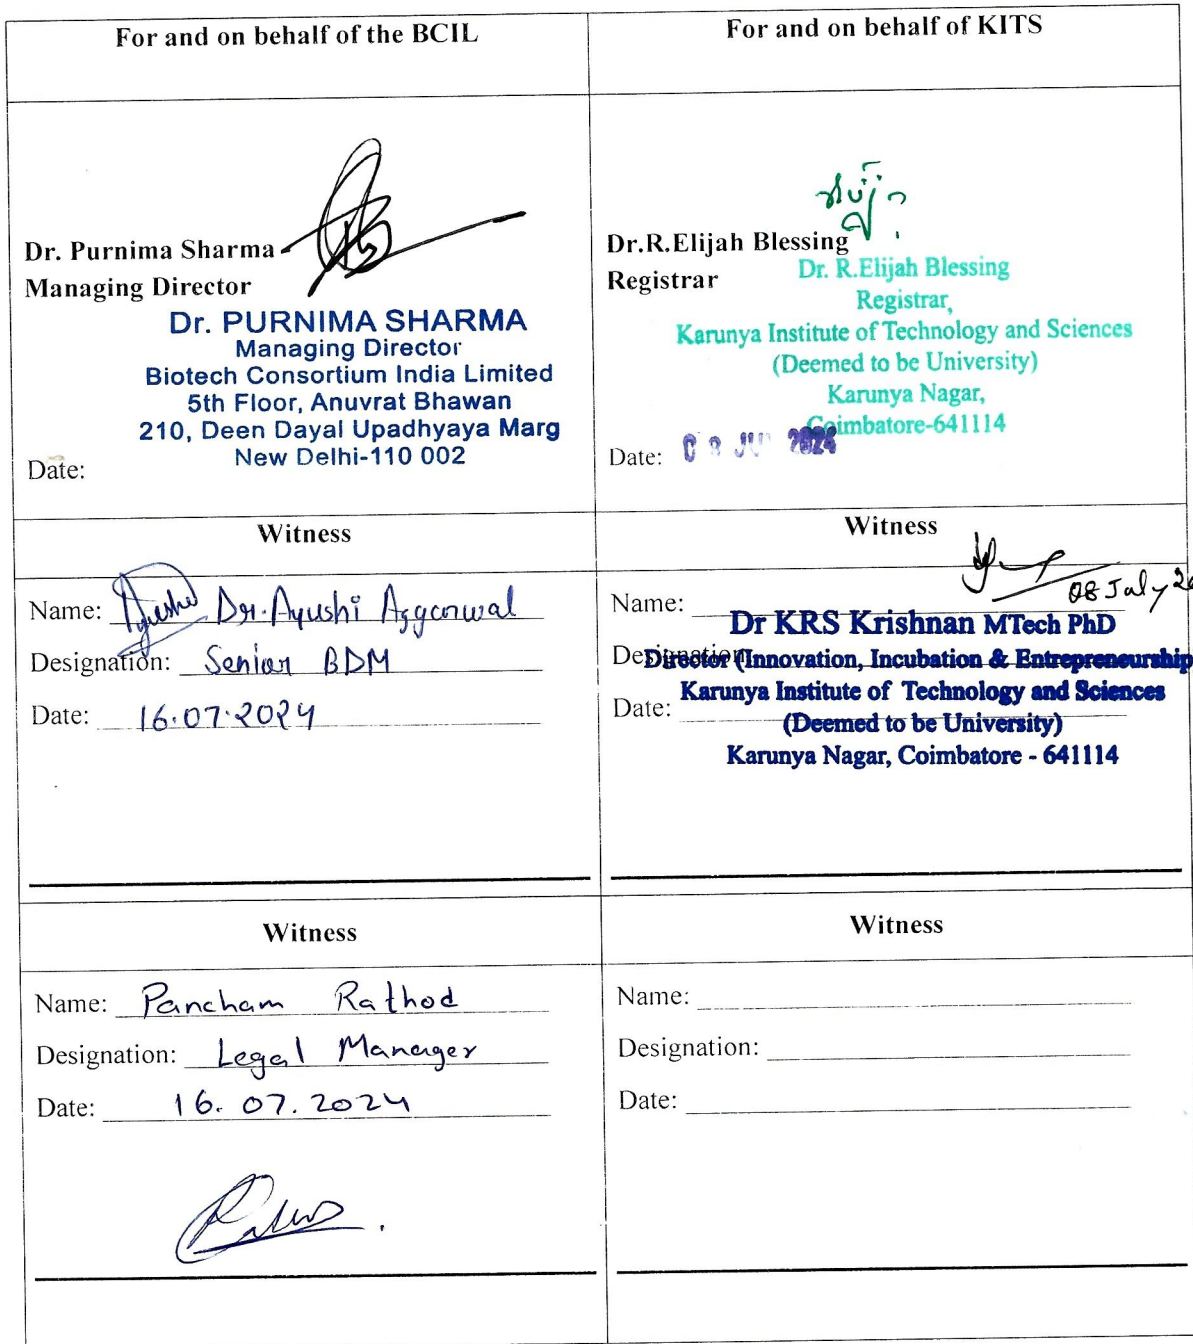 For and on behalf of the BCIL
For and on behalf of KITS
Dr. Purnima Sharma
Managing Director
Dr. PURNIMA SHARMA
Managing Director
Biotech Consortium India Limited
5th Floor, Anuvrat Bhawan
210, Deen Dayal Upadhyaya Marg
New Delhi-110 002
Date:
Dr.R.Elijah Blessing
Registrar
Dr. R.Elijah Blessing
Registrar,
Karunya Institute of Technology and Sciences
(Deemed to be University)
Karunya Nagar,
Coimbatore-641114
Date: 2024
Witness
Name: Dr. Ayushi Aggarwal
Designation: Senior BDM
Date: 16.07.2024
Witness
08 July
Name:
Dr KRS Krishnan MTech PhD
Designation:
Director (Innovation, Incubation & Entrepreneurship
Karunya Institute of Technology and Sciences
Date:
(Deemed to be University)
Karunya Nagar, Coimbatore - 641114
Witness
Name: Pancham Rathod
Designation: Legal Manager
Date: 16.07.2024
Witness
Name:
Designation:
Date: